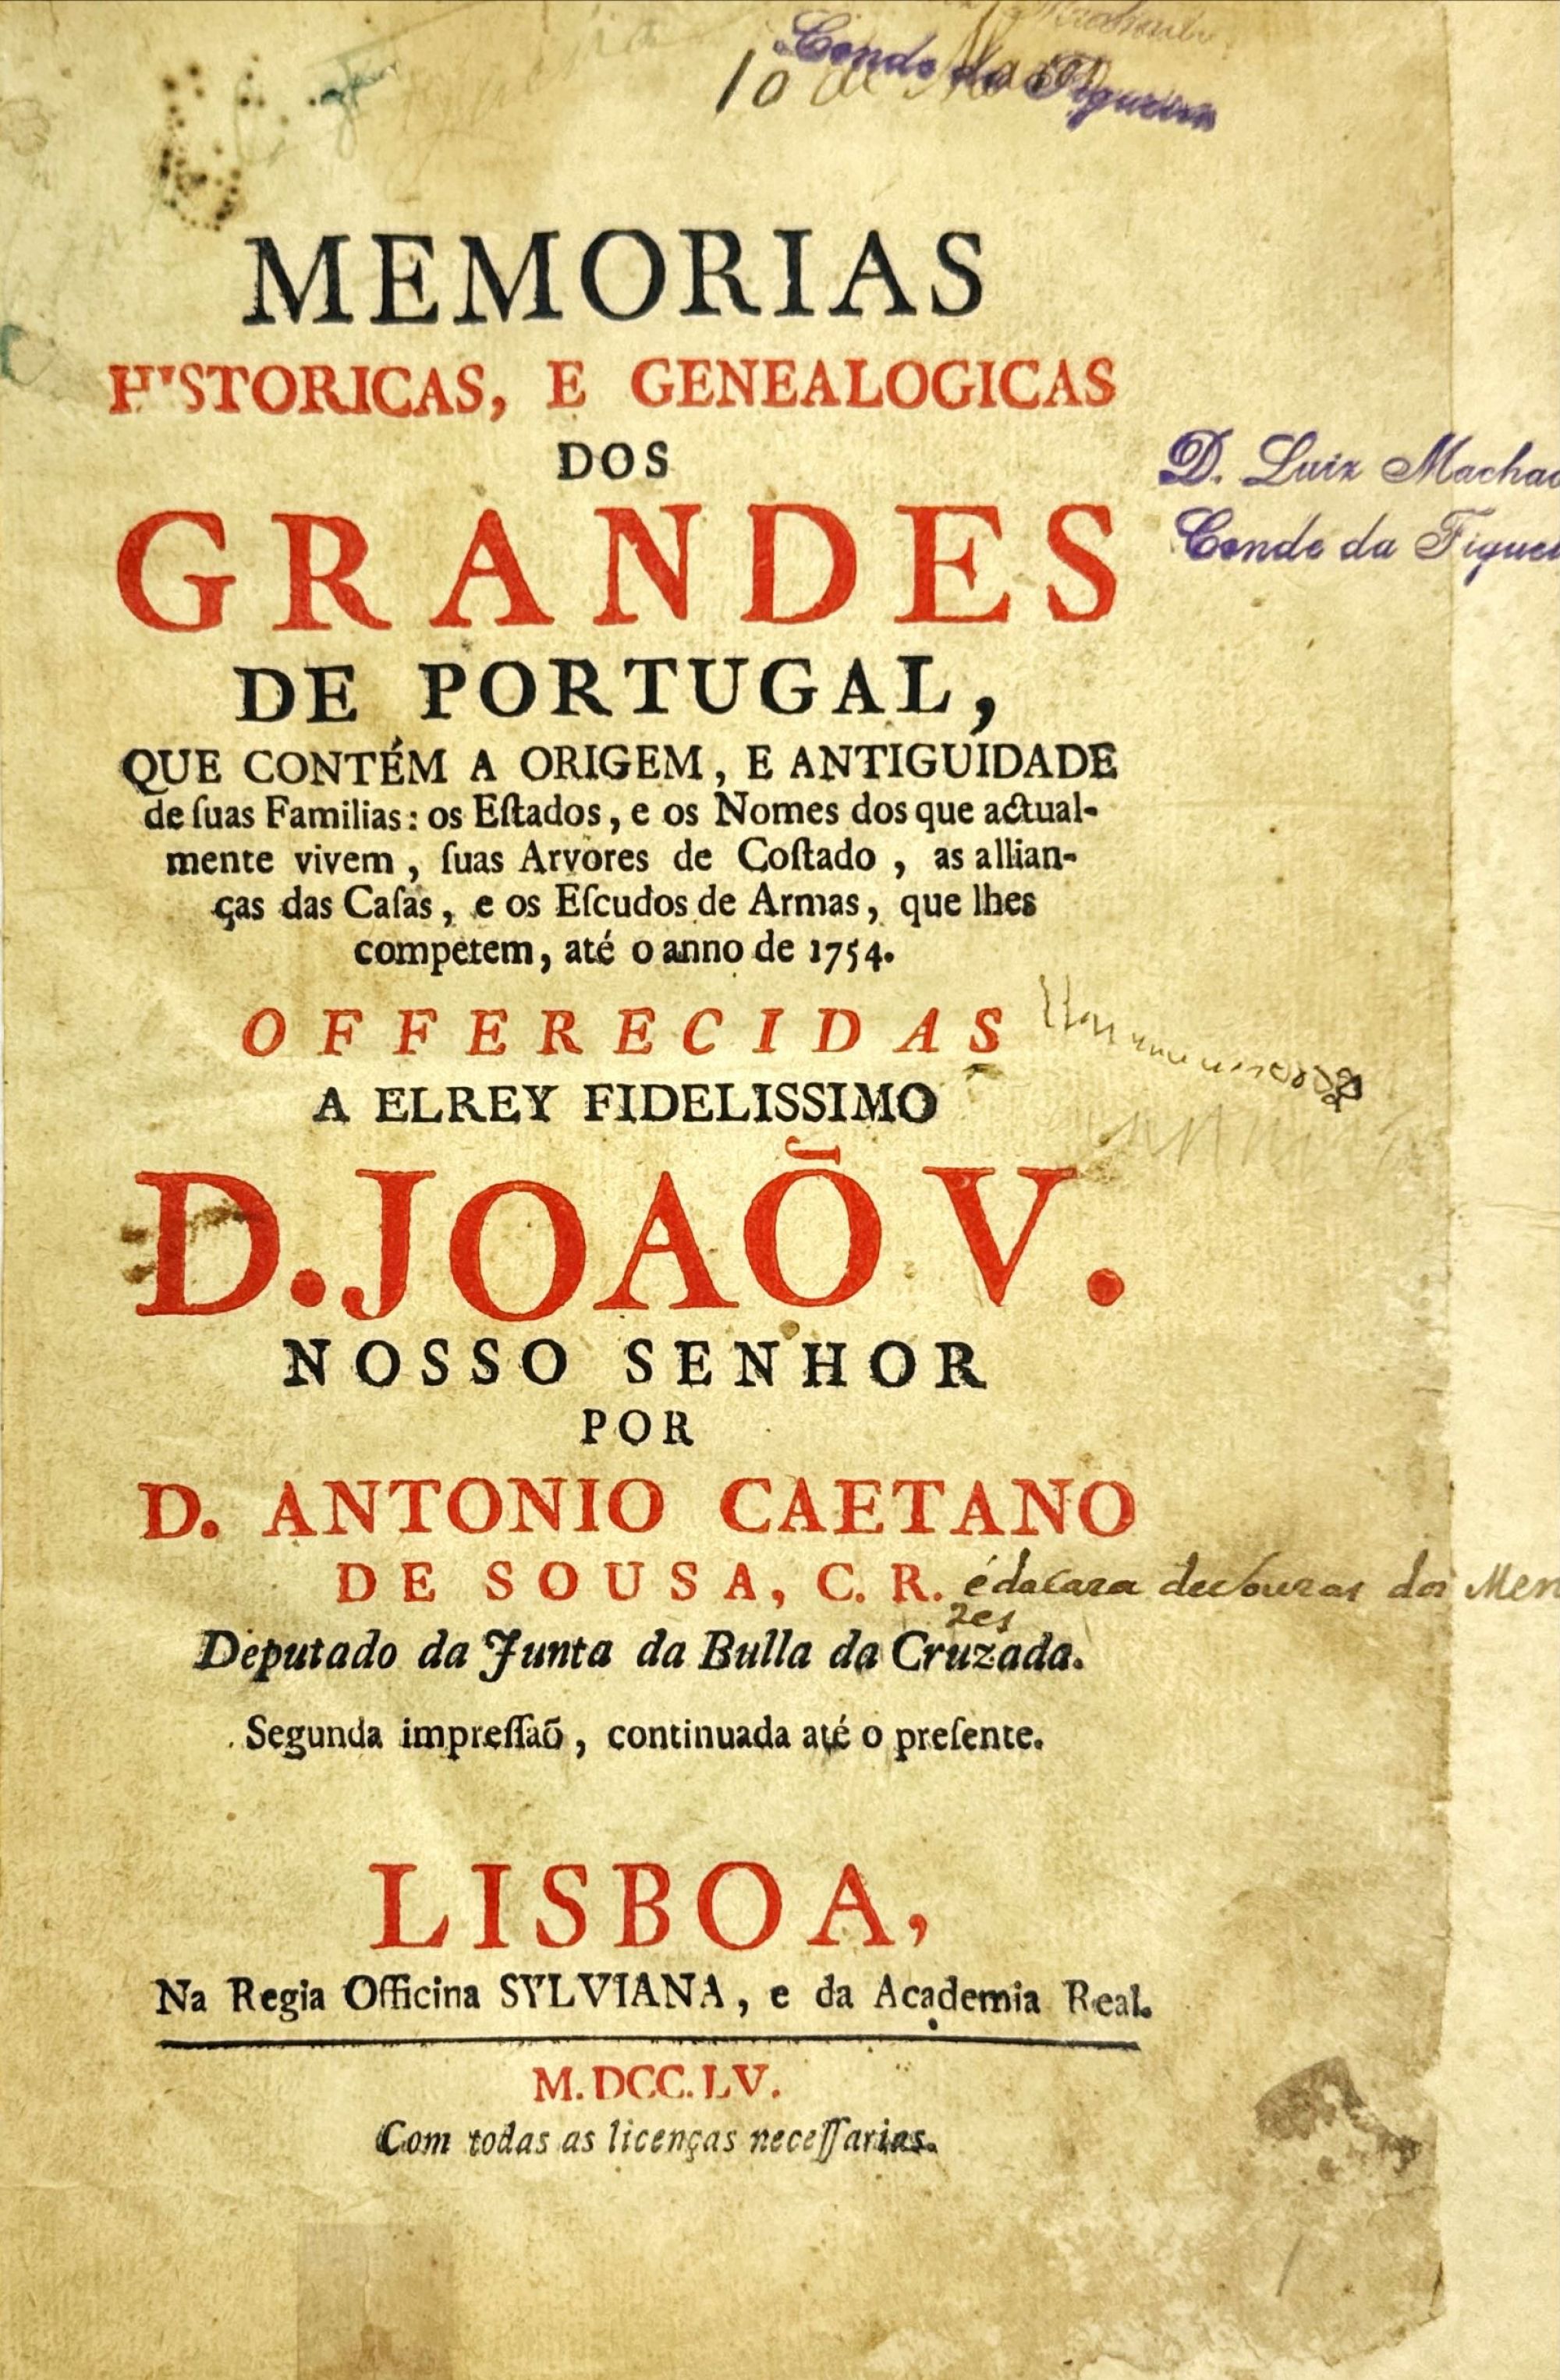 Conde da Figueira
10 de
MEMORIAS
HISTORICAS, E GENEALOGICAS
DOS
GRANDES
D. Luiz Machad
Conde da Figuei
DE PORTUGAL,
QUE CONTÉM A ORIGEM, E ANTIGUIDADE
de ſuas Familias: os Eſtados, e os Nomes dos que actual-
mente vivem, ſuas Arvores de Coſtado, as allian-
ças das Caſas, e os Eſcudos de Armas, que lhes
competem, até o anno de 1754.
OFFERECIDAS
A ELREY FIDELISSIMO
D. JOAÕ V.
NOSSO SENHOR
POR
D. ANTONIO CAETANO
DE SOUSA, C. R. é da caza
Deputado da Junta da Bulla da Cruzada.
Segunda impreſſaõ, continuada até o preſente.
LISBOA,
Na Regia Officina SYLVIANA, e da Academia Real.
M. DCC. LV.
Com todas as licenças neceſſarias.